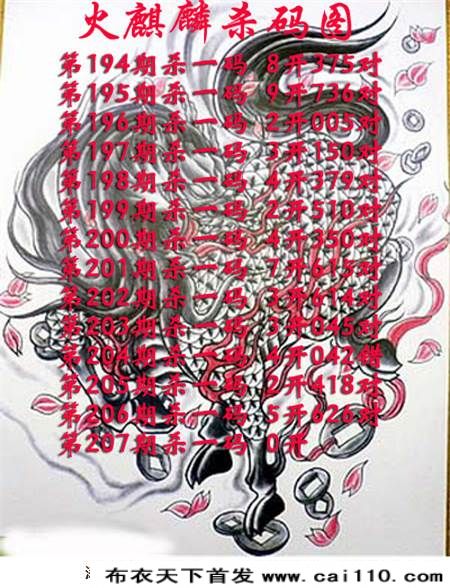 火麒麟杀码图
第194期杀一码 8开375对
第195期杀一码 9开736对
第196期杀一码 2开005对
第197期杀一码 3开150对
第198期杀一码 4开379对
第199期杀一码 2开510对
第200期杀一码 4开350对
第201期杀一码 7开615对
第202期杀一码 3开614对
第203期杀一码 3开045对
第204期杀一码 4开042错
第205期杀一码 2开418对
第206期杀一码 5开626对
第207期杀一码 0开
布衣天下首发 www.cai110.com